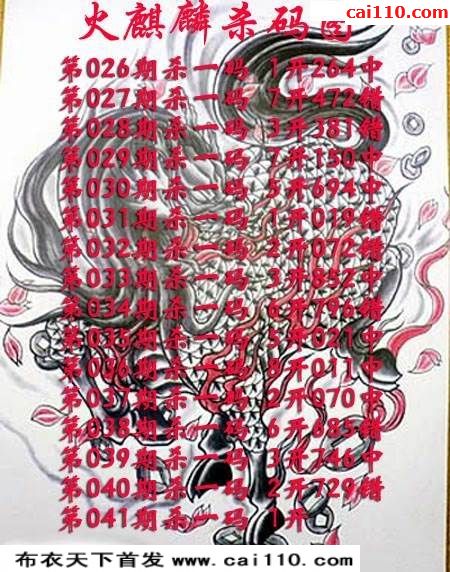 cai110.com
火麒麟杀码
第026期杀一码 1开264中
第027期杀一码 7开472错
第028期杀一码 3开381错
第029期杀一码 7开150中
第030期杀一码 5开694中
第031期杀一码 1开019错
第032期杀一码 2开072错
第033期杀一码 3开852中
第034期杀一码 6开796错
第035期杀一码 5开021中
第036期杀一码 8开011中
第037期杀一码 2开070中
第038期杀一码 6开685错
第039期杀一码 3开746中
第040期杀一码 2开729错
第041期杀一码 1开
布衣天下首发 www.cai110.com